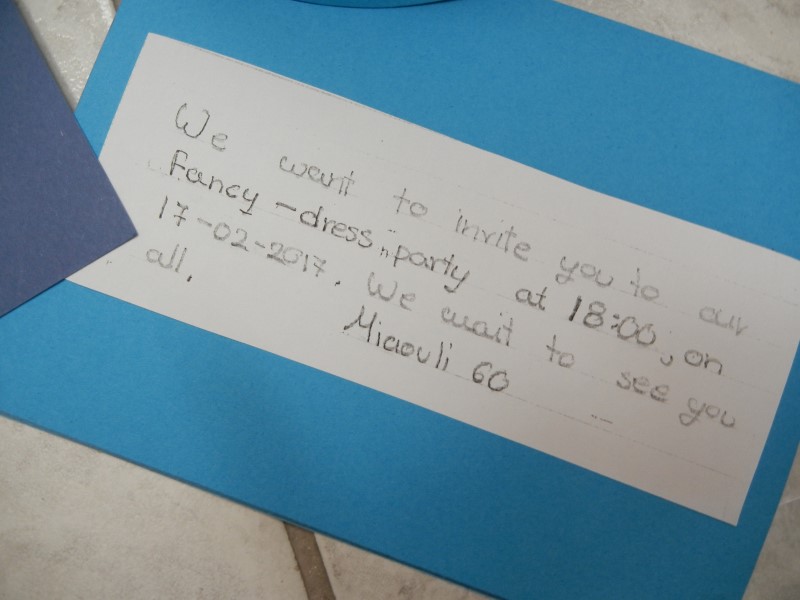 We want to invite you to our
Fancy-dress party at 18:00, on
17-02-2017. We wait to see you
all.
Miaouli 60